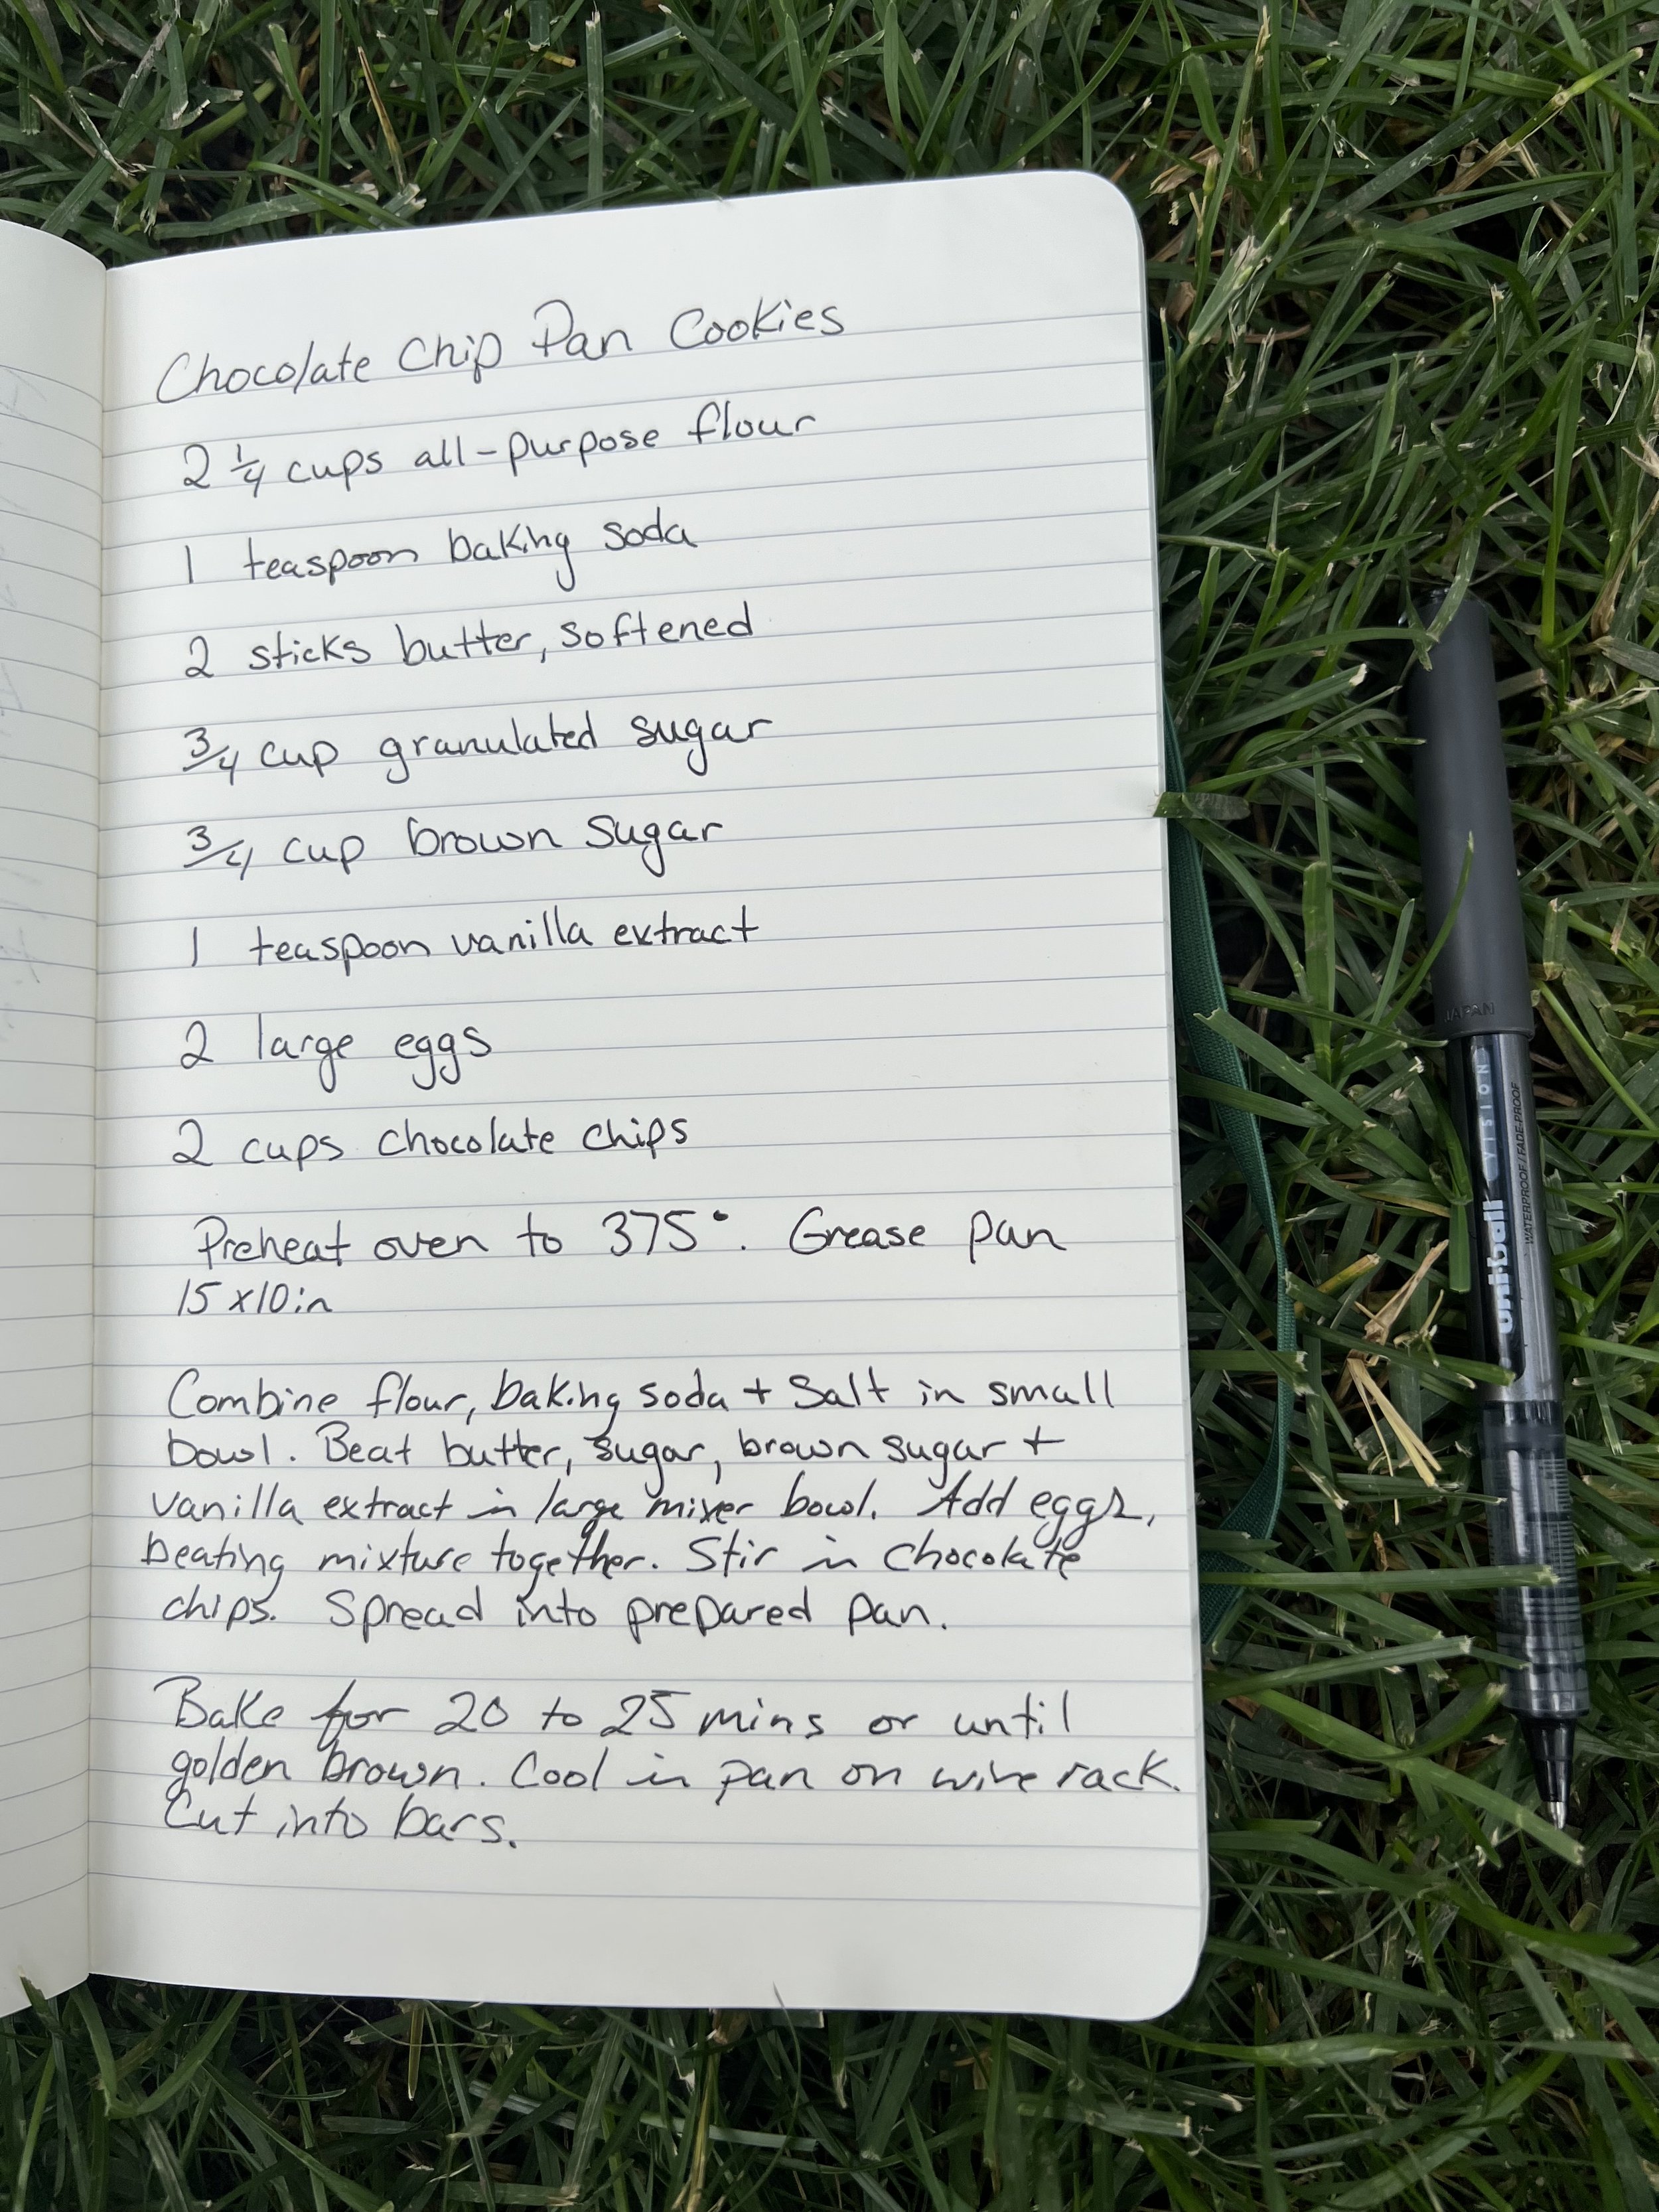 Chocolate Chip Pan Cookies
2 1/4 cups all-purpose flour
1 teaspoon baking soda
2 sticks butter, softened
3/4 cup granulated sugar
3/4 cup brown sugar
1 teaspoon vanilla extract
2 large eggs
2 cups chocolate chips
Preheat oven to 375°. Grease pan
15x10in
Combine flour, baking soda + salt in small
bowl. Beat butter, sugar, brown sugar +
vanilla extract in large mixer bowl. Add eggs,
beating mixture together. Stir in chocolate
chips. Spread into prepared pan.
Bake for 20 to 25 mins or until
golden brown. Cool in pan on wire rack.
Cut into bars.
JAPAN
uni-ball VISION
WATERPROOF / FADE-PROOF